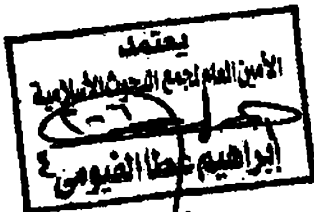 يعتمد
الأمين العام لمجمع البحوث الإسلامية
إبراهيم عطا الفيومي